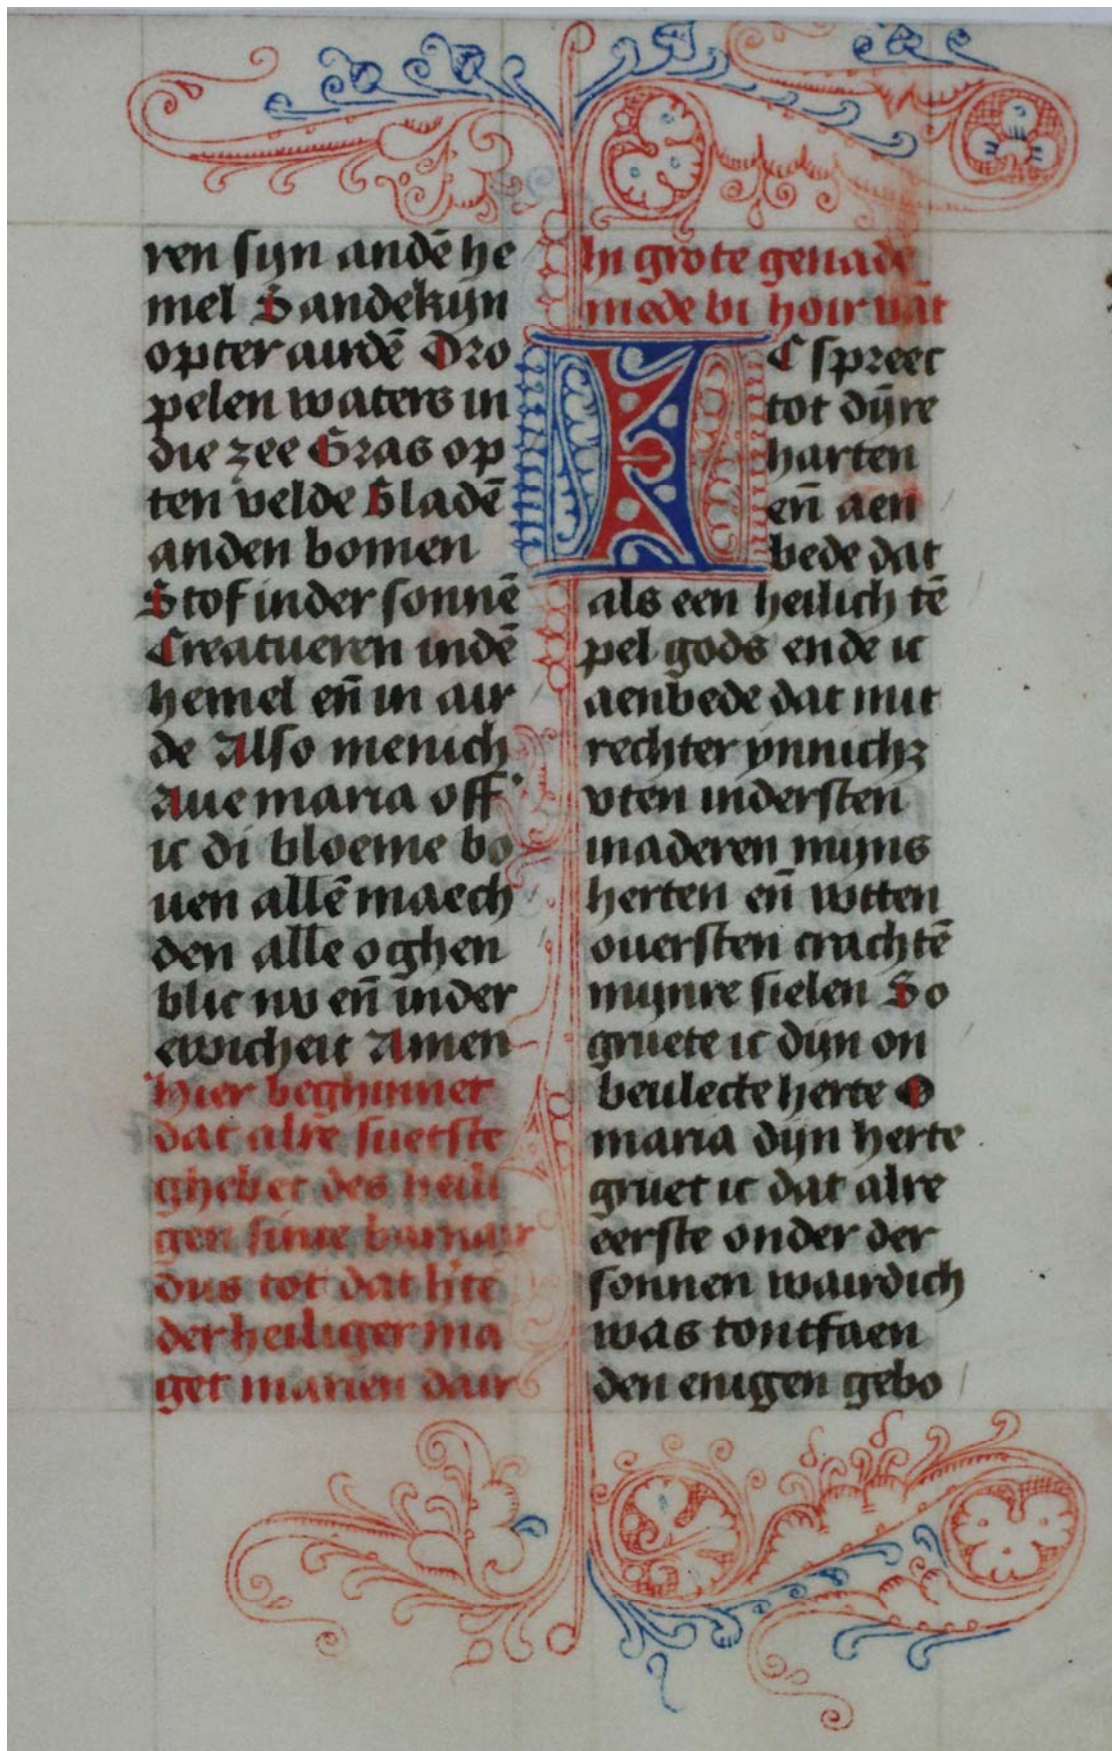 ren sijn andē he
mel Sandekijn
opter airdē Dro
pelen waters in
die zee Gras op
ten velde Bladē
anden bomen
Stof inder sonnē
Creatueren indē
hemel eñ in air
de Also menich
Aue maria off
ic di bloeme bo
uen allē maech
den alle oghen
blic nv eñ inder
ewicheit Amen
Hier beghinnet
dat alre suetste
ghebet des heili
gen sinte barnar
dus tot dat hte
der heiliger ma
get marien dair
In grote genade
mede bi hoir vāt
IC spreec
tot dijre
harten
eñ aen
bede dat
als een heilich tē
pel gods ende ic
aenbede dat mit
rechter ynnichȝ
vten indersten
inaderen mijns
herten eñ wtten
ouersten crachtē
mijnre sielen So
gruete ic dijn on
beulecte herte O
maria dijn herte
gruet ic dat alre
eerste onder der
sonnen wairdich
was tontfaen
den enigen gebo